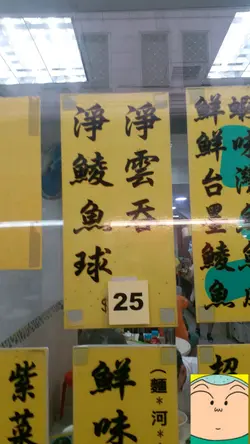 淨雲吞
淨鯪魚球
$25
鮮鮮台墨鯪魚
(麵*河*
鮮味
紫菜